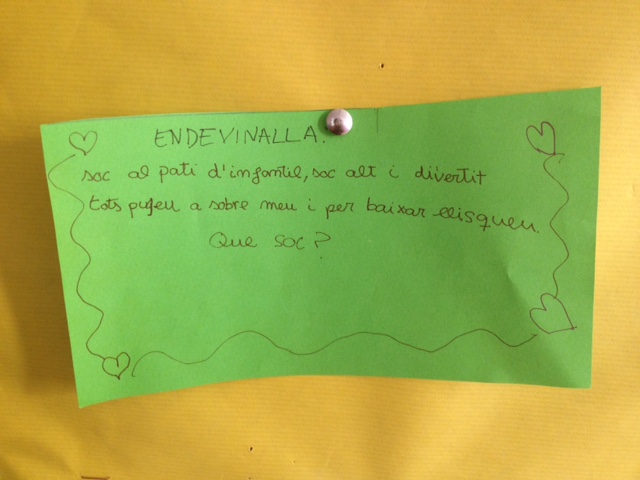 ENDEVINALLA.
soc al pati d'infantil, soc alt i divertit
tots pujeu a sobre meu i per baixar llisqueu.
Que soc?